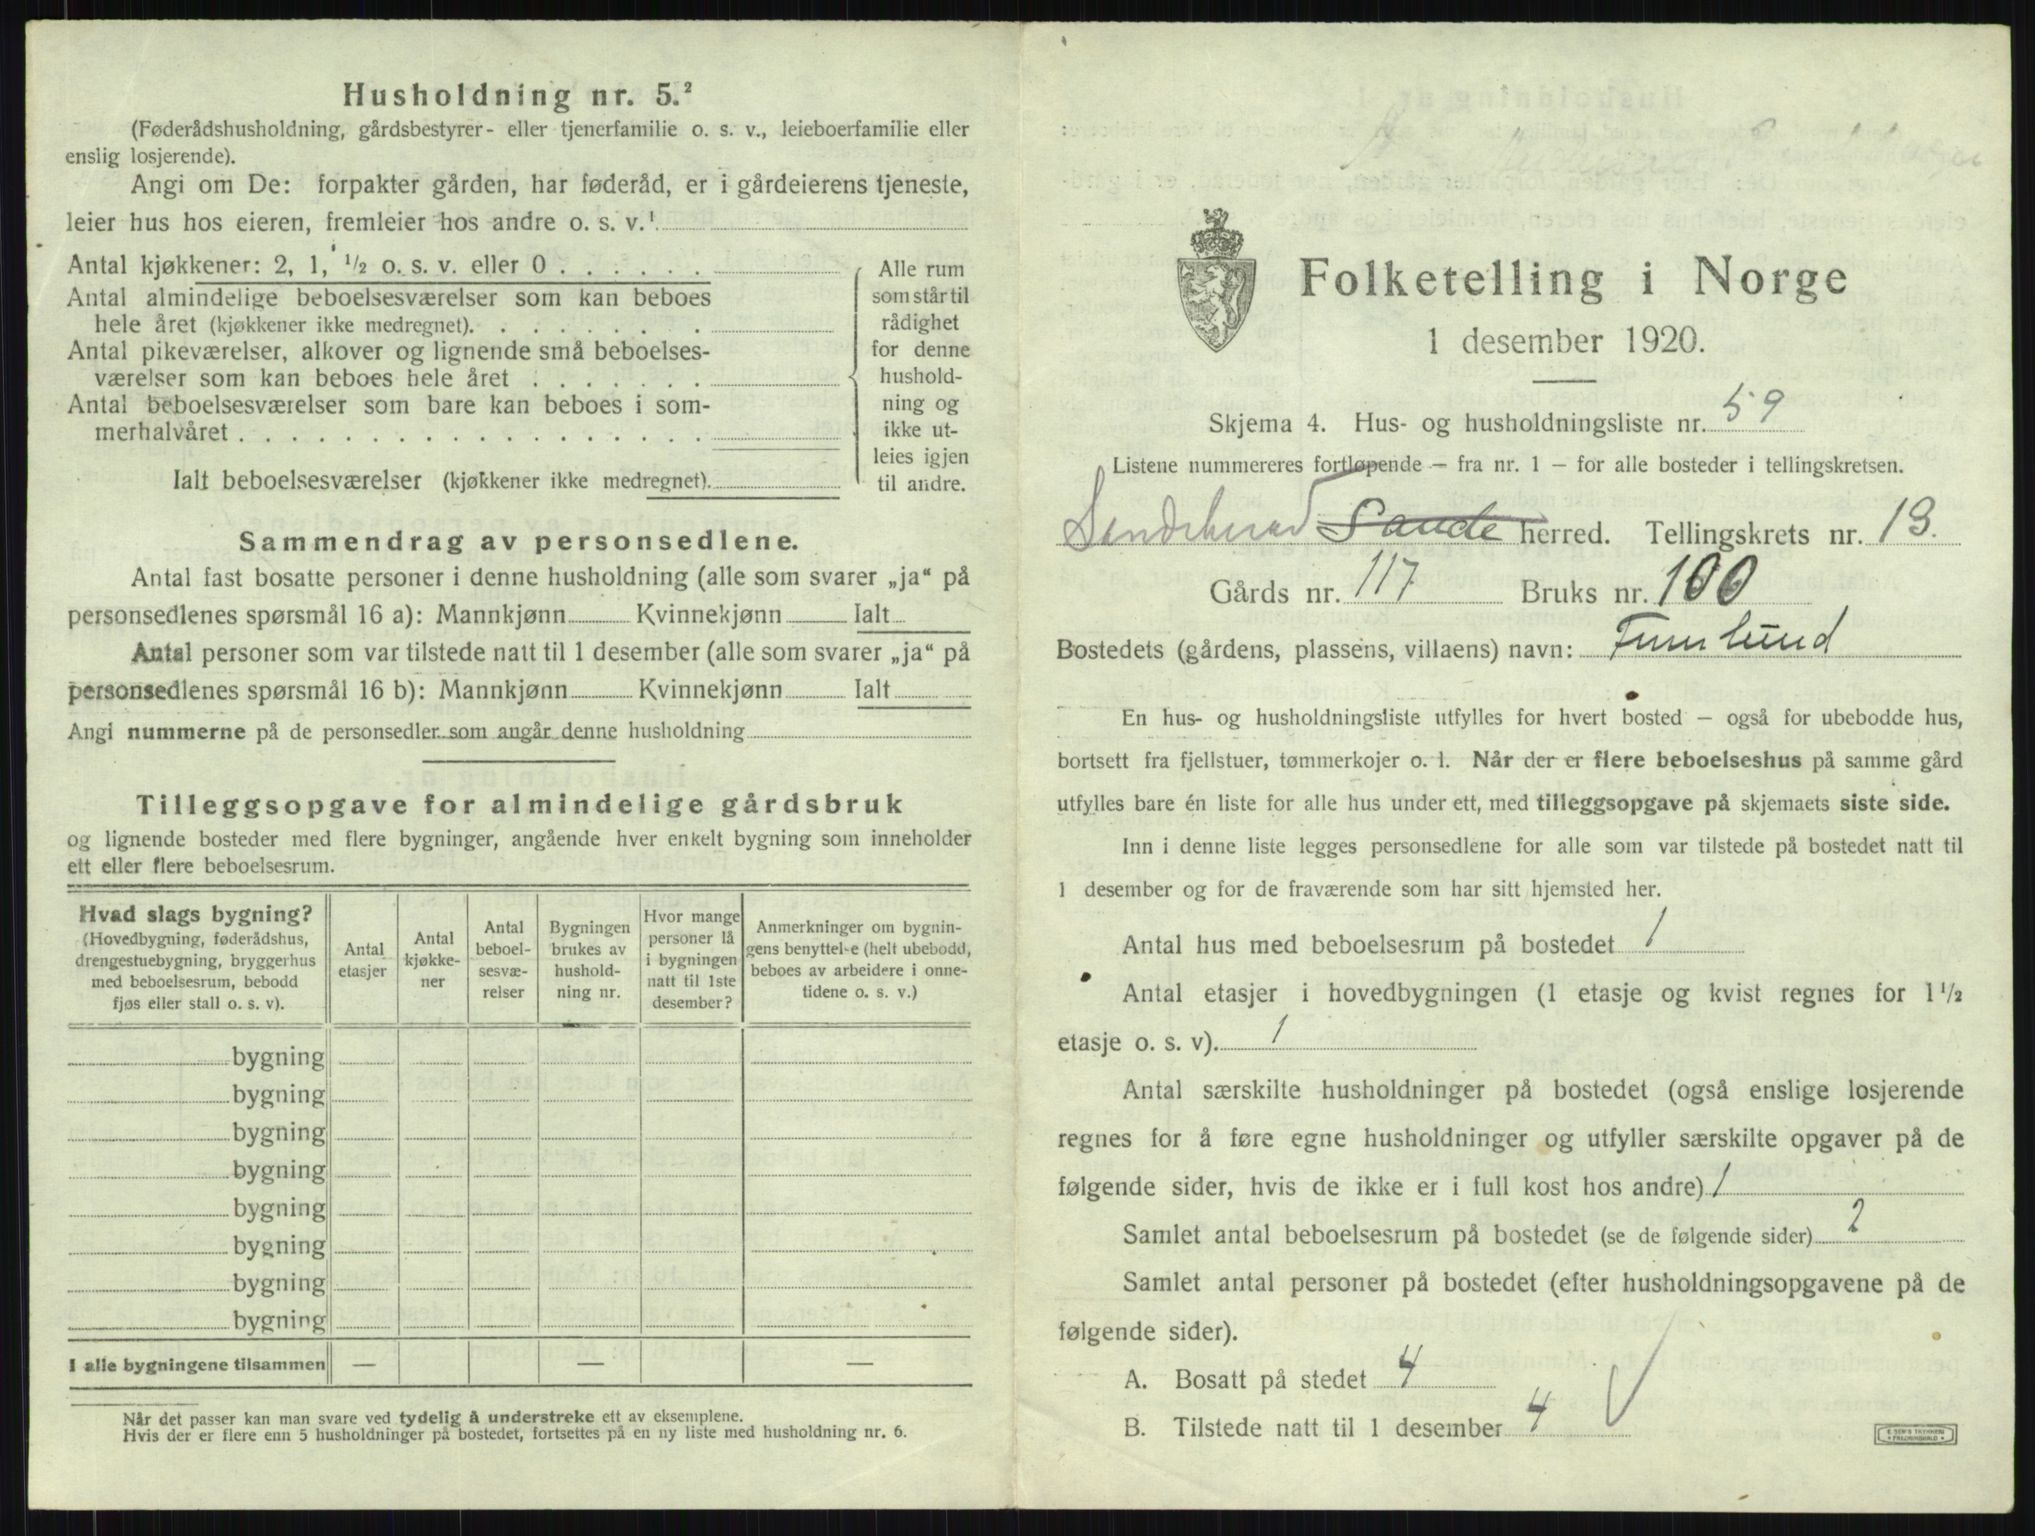 Husholdning nr. 5.²
(Føderådshusholdning, gårdsbestyrer- eller tjenerfamilie o. s. v., leieboerfamilie eller
enslig losjerende).
Angi om De: forpakter gården, har føderåd, er i gårdeierens tjeneste,
leier hus hos eieren, fremleier hos andre o. s. v.¹
Antal kjøkkener: 2, 1, ½ o. s. v. eller 0 . . . . . .
Antal almindelige beboelsesværelser som kan beboes
hele året (kjøkkener ikke medregnet). . . . . . . . .
Antal pikeværelser, alkover og lignende små beboelses-
værelser som kan beboes hele året . . . . . . .
Antal beboelsesværelser som bare kan beboes i som-
merhalvåret . . . . . . . . . . . . . . . . . .
Ialt beboelsesværelser (kjøkkener ikke medregnet).
Alle rum
som står til
rådighet
for denne
hushold-
ning og
ikke ut-
leies igjen
til andre.
Sammendrag av personsedlene.
Antal fast bosatte personer i denne husholdning (alle som svarer „ja“ på
personsedlenes spørsmål 16 a): Mannkjønn Kvinnekjønn Ialt
Antal personer som var tilstede natt til 1 desember (alle som svarer „ja“ på
personsedlenes spørsmål 16 b): Mannkjønn Kvinnekjønn Ialt
Angi nummerne på de personsedler som angår denne husholdning
Tilleggsopgave for almindelige gårdsbruk
og lignende bosteder med flere bygninger, angående hver enkelt bygning som inneholder
ett eller flere beboelsesrum.
Hvad slags bygning?
(Hovedbygning, føderådshus,
drengestuebygning, bryggerhus
med beboelsesrum, bebodd
fjøs eller stall o. s. v).
Antal
etasjer
Antal
kjøkke-
ner
Antal
beboel-
sesvæ-
relser
Bygningen
brukes av
hushold-
ning nr.
Hvor mange
personer lå
i bygningen
natt til 1ste
desember?
Anmerkninger om bygnin-
gens benyttelse (helt ubebodd,
beboes av arbeidere i onne-
tidene o. s. v.)
bygning
bygning
bygning
bygning
bygning
bygning
bygning
bygning
I alle bygningene tilsammen — — —
Når det passer kan man svare ved tydelig å understreke ett av eksemplene.
Hvis der er flere enn 5 husholdninger på bostedet, fortsettes på en ny liste med husholdning nr. 6.
Folketelling i Norge
1 desember 1920.
Skjema 4. Hus- og husholdningsliste nr. 59
Listene nummereres fortløpende — fra nr. 1 — for alle bosteder i tellingskretsen.
Sandeherad Sande herred. Tellingskrets nr. 13.
Gårds nr. 117 Bruks nr. 100
Bostedets (gårdens, plassens, villaens) navn:
En hus- og husholdningsliste utfylles for hvert bosted — også for ubebodde hus,
bortsett fra fjellstuer, tømmerkojer o. l. Når der er flere beboelseshus på samme gård
utfylles bare én liste for alle hus under ett, med tilleggsopgave på skjemaets siste side.
Inn i denne liste legges personsedlene for alle som var tilstede på bostedet natt til
1 desember og for de fraværende som har sitt hjemsted her.
Antal hus med beboelsesrum på bostedet 1
Antal etasjer i hovedbygningen (1 etasje og kvist regnes for 1½
etasje o. s. v). 1
Antal særskilte husholdninger på bostedet (også enslige losjerende
regnes for å føre egne husholdninger og utfyller særskilte opgaver på de
følgende sider, hvis de ikke er i full kost hos andre) 1
Samlet antal beboelsesrum på bostedet (se de følgende sider) 2
Samlet antal personer på bostedet (efter husholdningsopgavene på de
følgende sider).
A. Bosatt på stedet 4
B. Tilstede natt til 1 desember 4